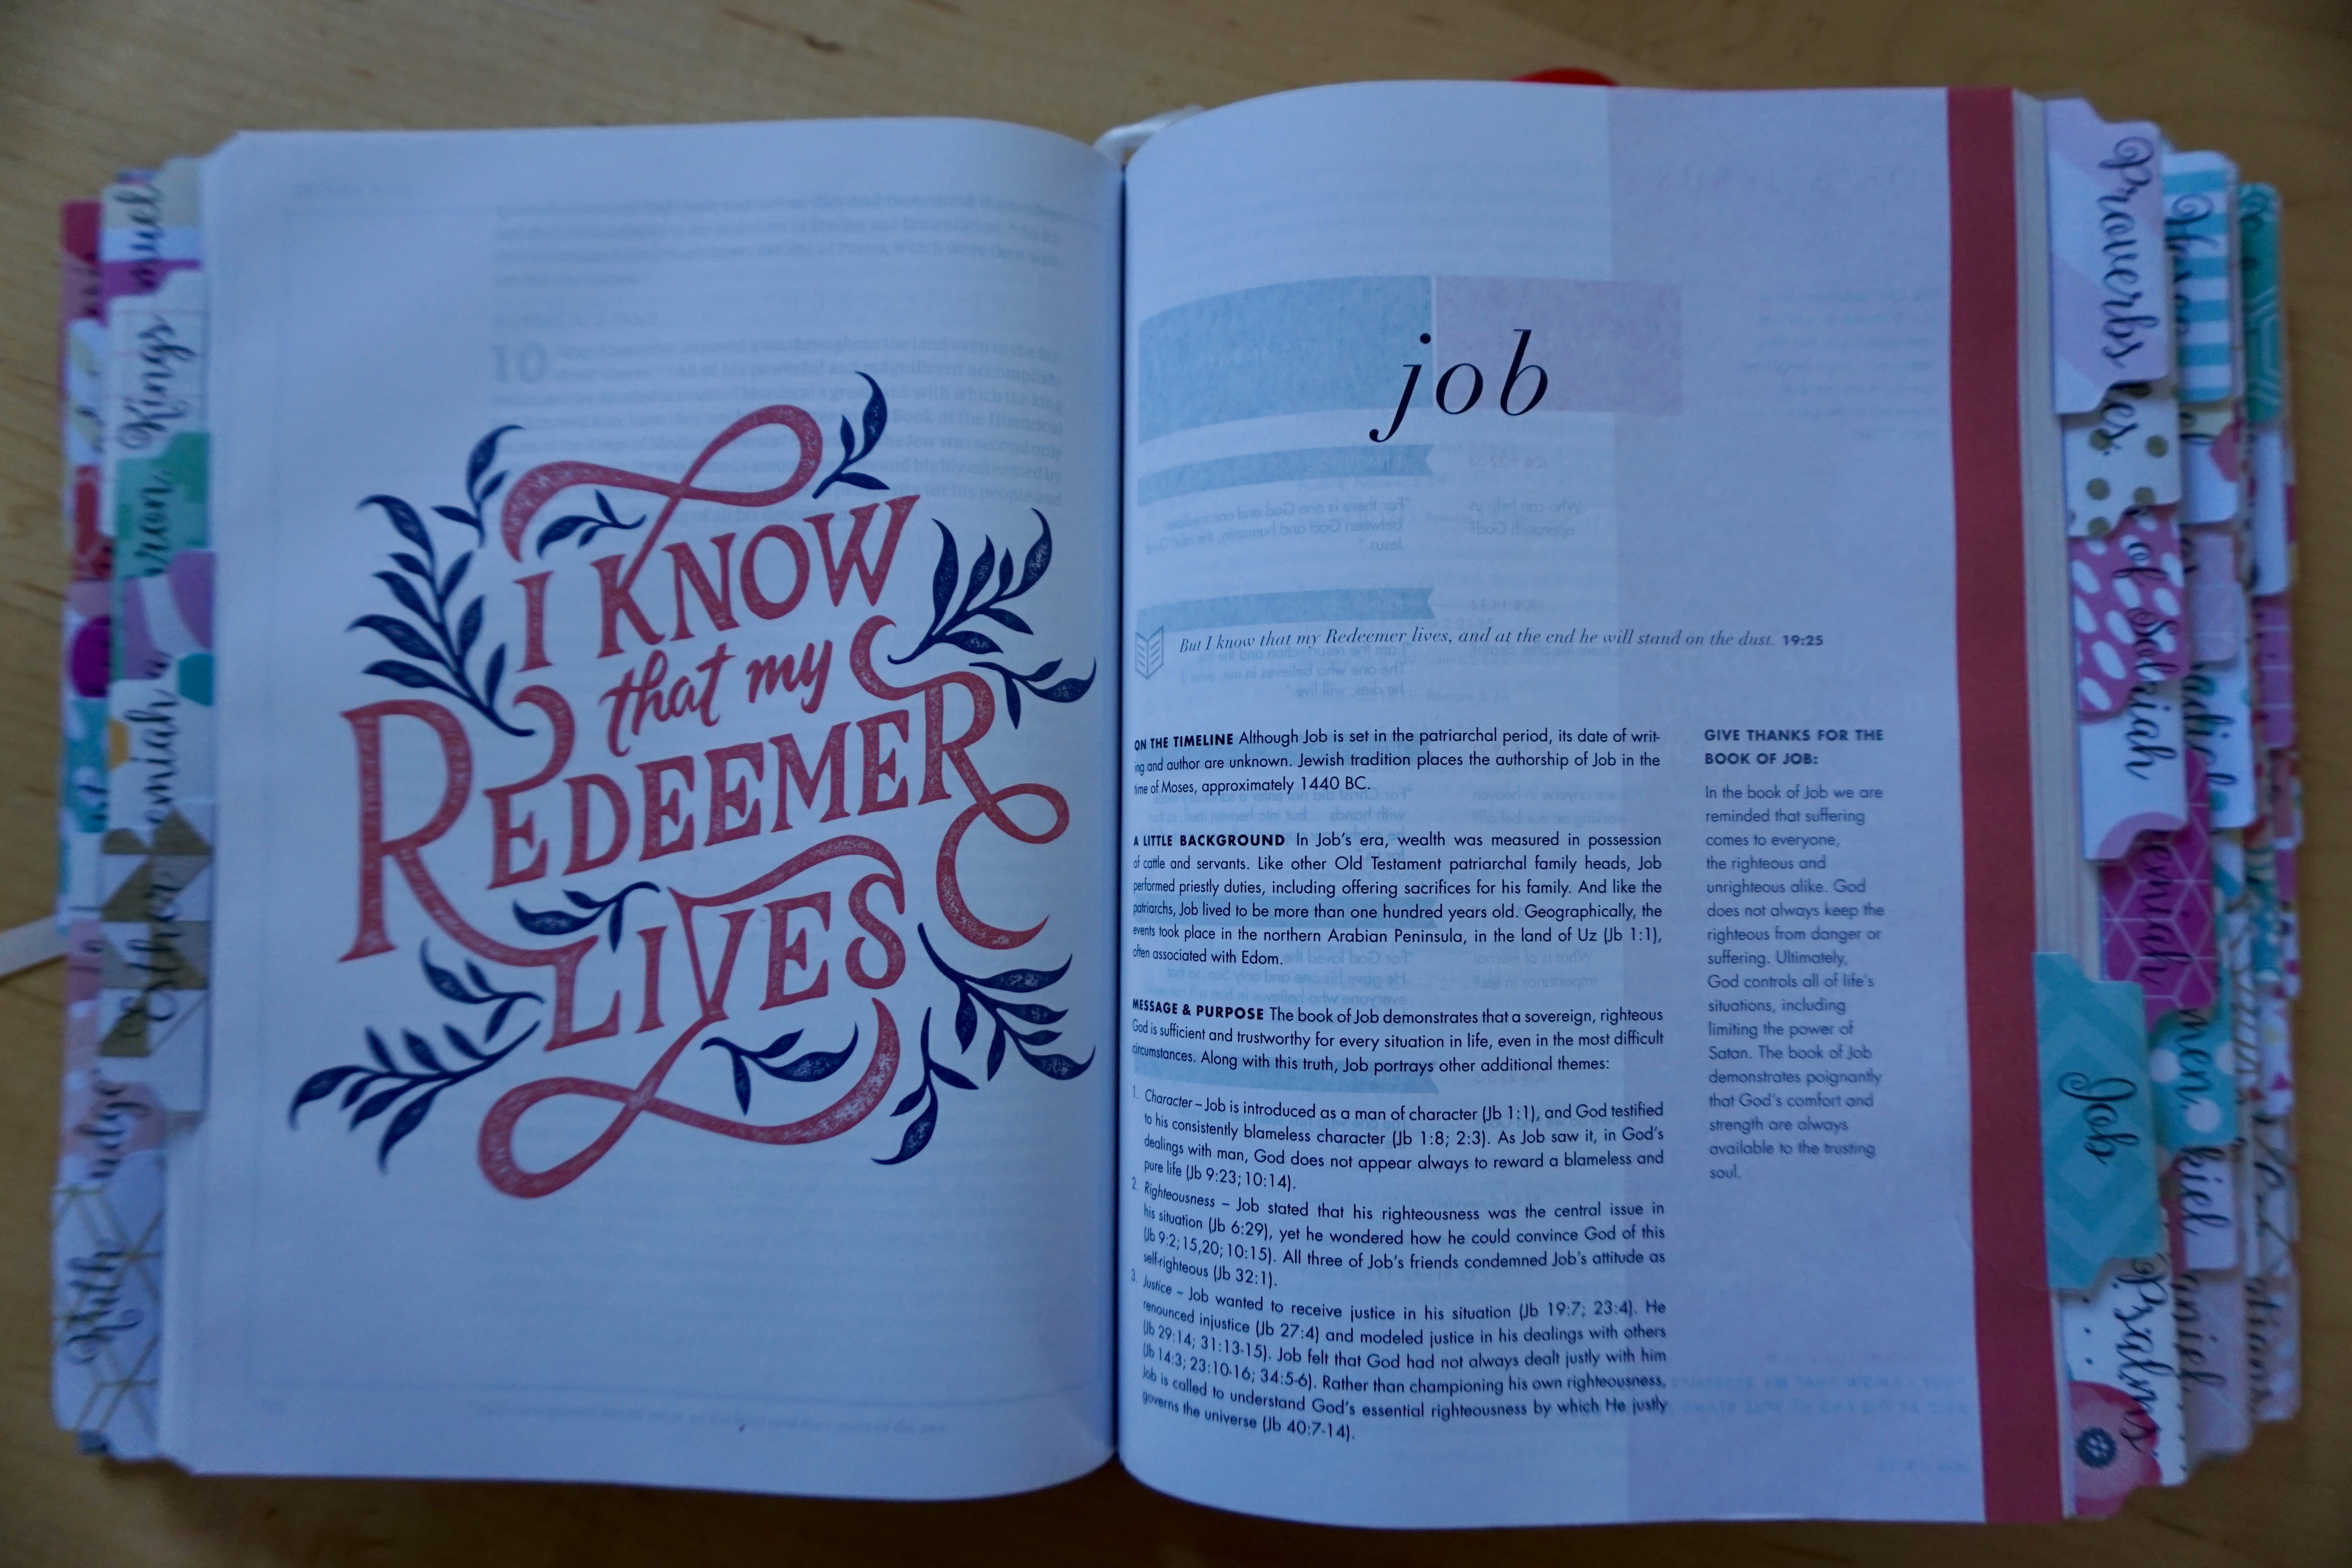 I KNOW
that my
REDEEMER
LIVES
job
But I know that my Redeemer lives, and at the end he will stand on the dust. 19:25
ON THE TIMELINE Although Job is set in the patriarchal period, its date of writ-
ing and author are unknown. Jewish tradition places the authorship of Job in the
time of Moses, approximately 1440 BC.
A LITTLE BACKGROUND In Job's era, wealth was measured in possession
of cattle and servants. Like other Old Testament patriarchal family heads, Job
performed priestly duties, including offering sacrifices for his family. And like the
patriarchs, Job lived to be more than one hundred years old. Geographically, the
events took place in the northern Arabian Peninsula, in the land of Uz (Jb 1:1),
often associated with Edom.
MESSAGE & PURPOSE The book of Job demonstrates that a sovereign, righteous
God is sufficient and trustworthy for every situation in life, even in the most difficult
circumstances. Along with this truth, Job portrays other additional themes:
1. Character – Job is introduced as a man of character (Jb 1:1), and God testified
to his consistently blameless character (Jb 1:8; 2:3). As Job saw it, in God's
dealings with man, God does not appear always to reward a blameless and
pure life (Jb 9:23; 10:14).
2. Righteousness – Job stated that his righteousness was the central issue in
his situation (Jb 6:29), yet he wondered how he could convince God of this
(Jb 9:2; 15,20; 10:15). All three of Job's friends condemned Job's attitude as
self-righteous (Jb 32:1).
3. Justice – Job wanted to receive justice in his situation (Jb 19:7; 23:4). He
renounced injustice (Jb 27:4) and modeled justice in his dealings with others
(Jb 29:14; 31:13-15). Job felt that God had not always dealt justly with him
(Jb 14:3; 23:10-16; 34:5-6). Rather than championing his own righteousness,
Job is called to understand God's essential righteousness by which He justly
governs the universe (Jb 40:7-14).
GIVE THANKS FOR THE
BOOK OF JOB:
In the book of Job we are
reminded that suffering
comes to everyone,
the righteous and
unrighteous alike. God
does not always keep the
righteous from danger or
suffering. Ultimately,
God controls all of life's
situations, including
limiting the power of
Satan. The book of Job
demonstrates poignantly
that God's comfort and
strength are always
available to the trusting
soul.
Kings
Esther
Ruth
Proverbs
Job
Psalms